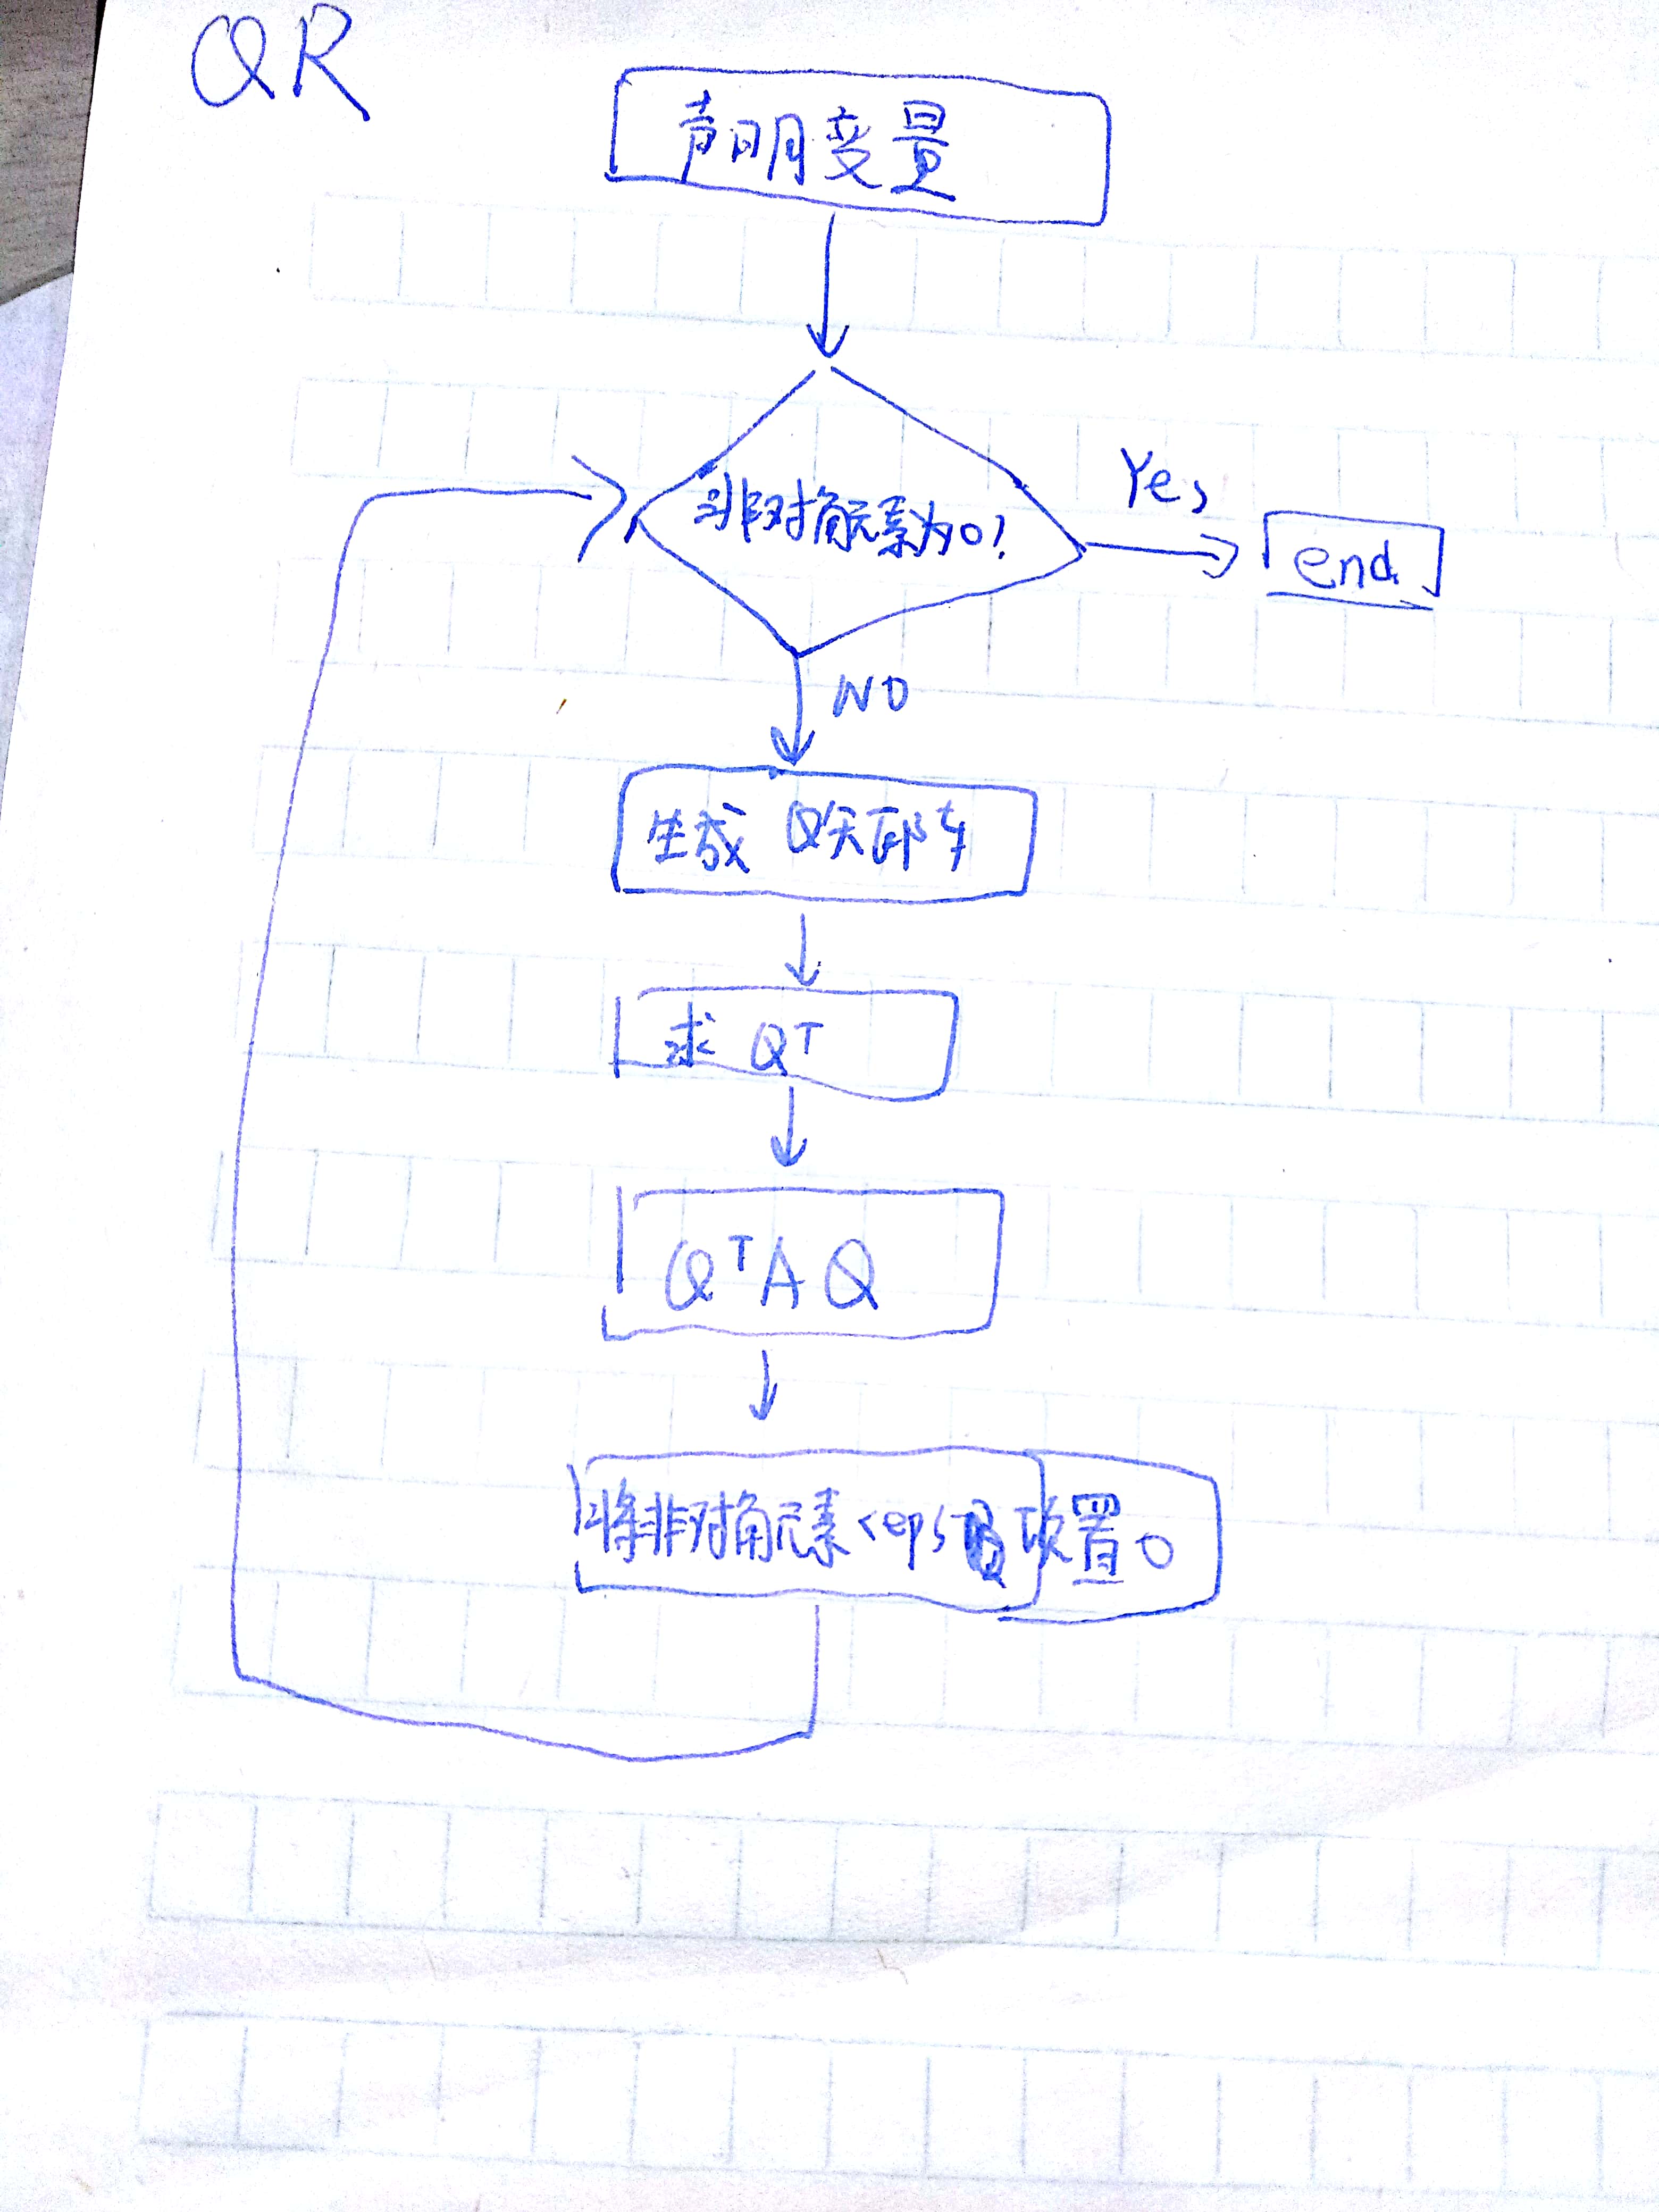 QR
声明变量
非对角元素为0?
Yes
end
NO
生成 Q矩阵
求 Qᵀ
QᵀAQ
将非对角元素<eps 项置0